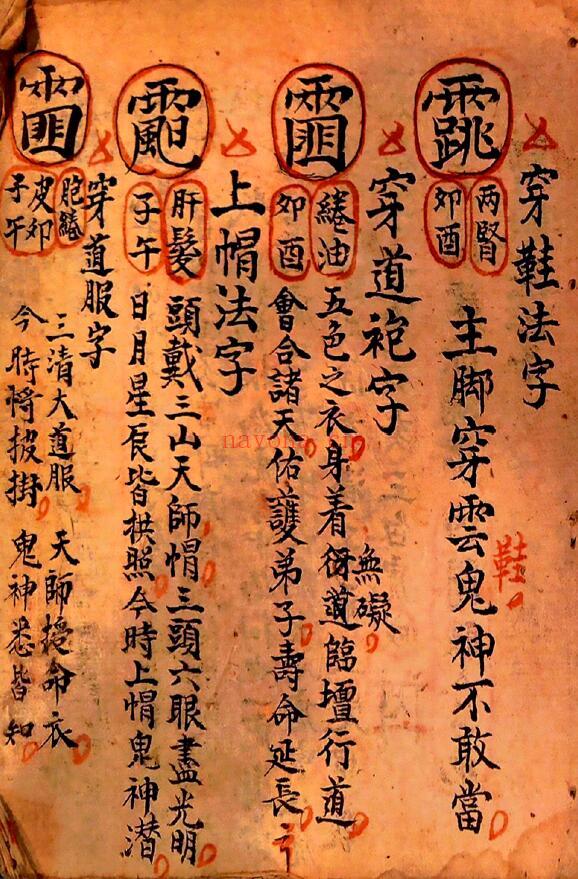 穿鞋法字
两腎
卯酉
主脚穿雲鬼神不敢當
鞋
穿道袍字
綣油
卯酉
五色之衣身着衍道臨壇行道
無礙
會合諸天佑護弟子壽命延長
上帽法字
肝髮
子午
頭戴三山天師帽三頭六眼盡光明
日月星辰皆拱照今時上帽鬼神潜
穿道服字
胞綣
皮卯
子午
三清大道服 天師授命衣
今時將披掛 鬼神悉皆知